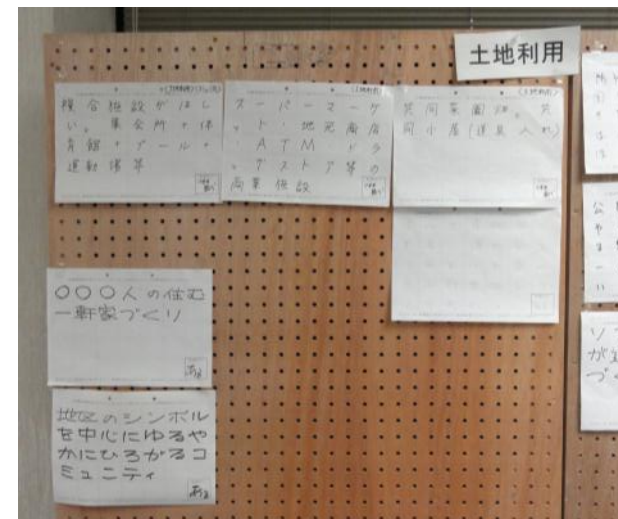 土地利用
複合施設がほし
い。集会所・体
育館・プール・
運動場等
スーパーマーケ
ット・地元商店
・ATM・ドラ
ッグストア等の
商業施設
共同菜園畑。共
同小屋(道具入れ)
○○○人の住む
一軒家づくり
ある
地区のシンボル
を中心にゆるや
かにひろがるコ
ミュニティ
ある